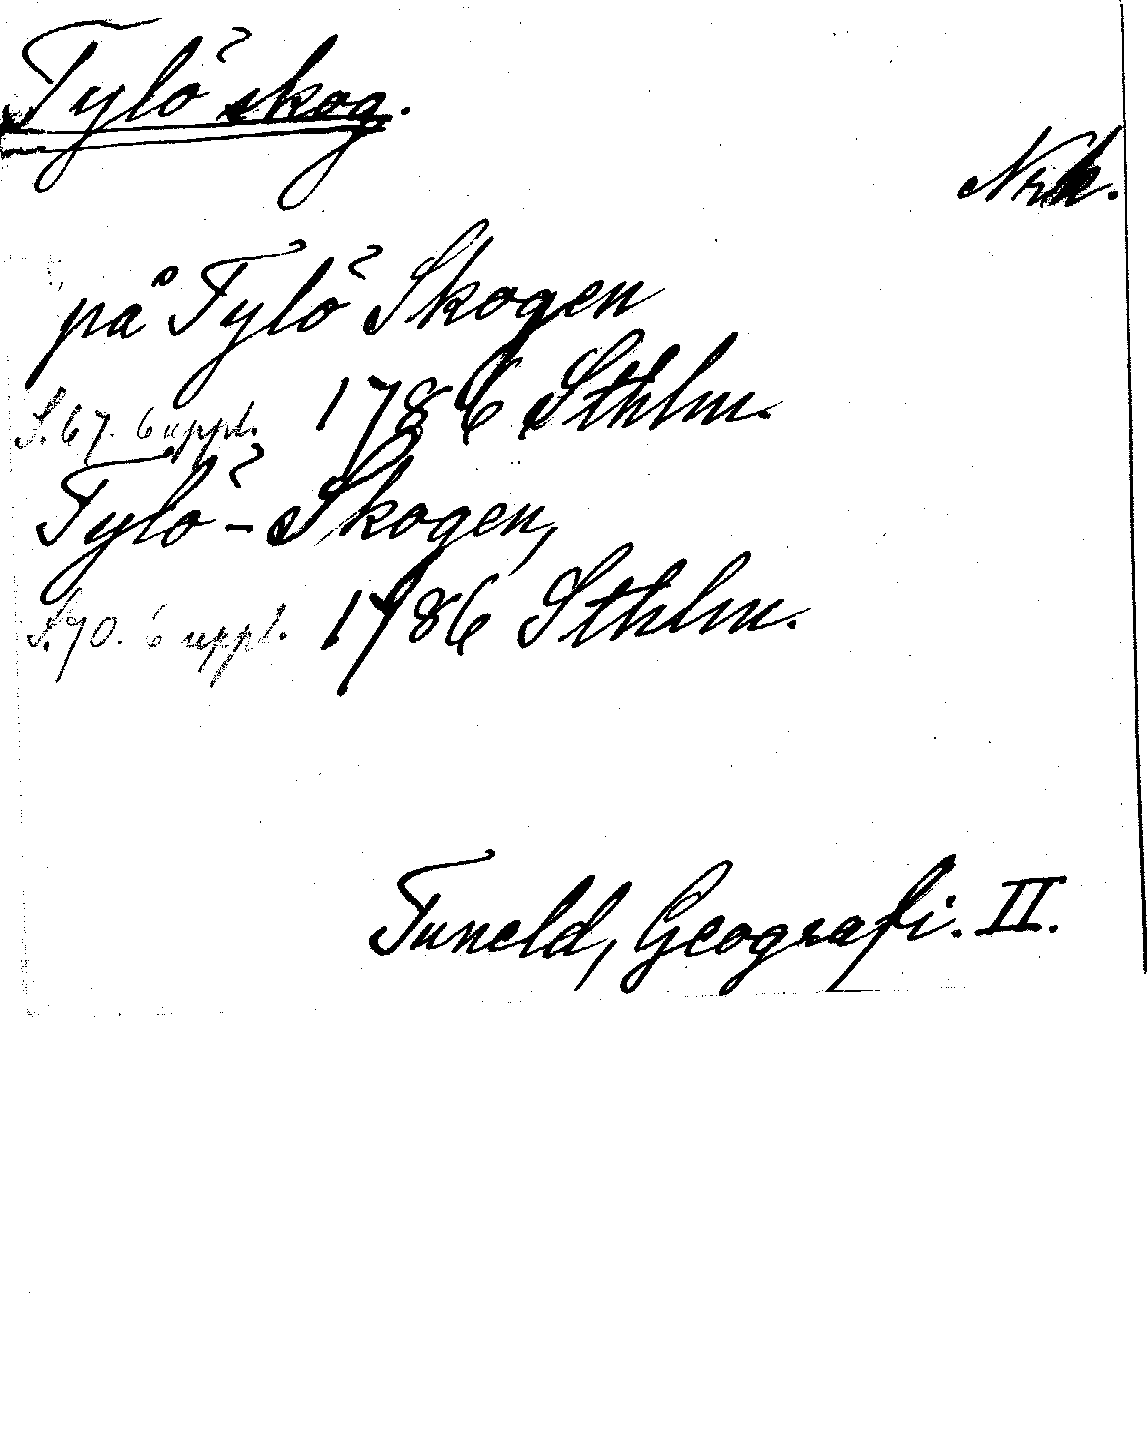 Tylö skog.
Nrk.
på Tylö Skogen
S. 67. 6 uppl. 1786 Sthlm.
Tylö-Skogen,
S. 70. 6 uppl. 1786 Sthlm.
Tuneld, Geografi. II.